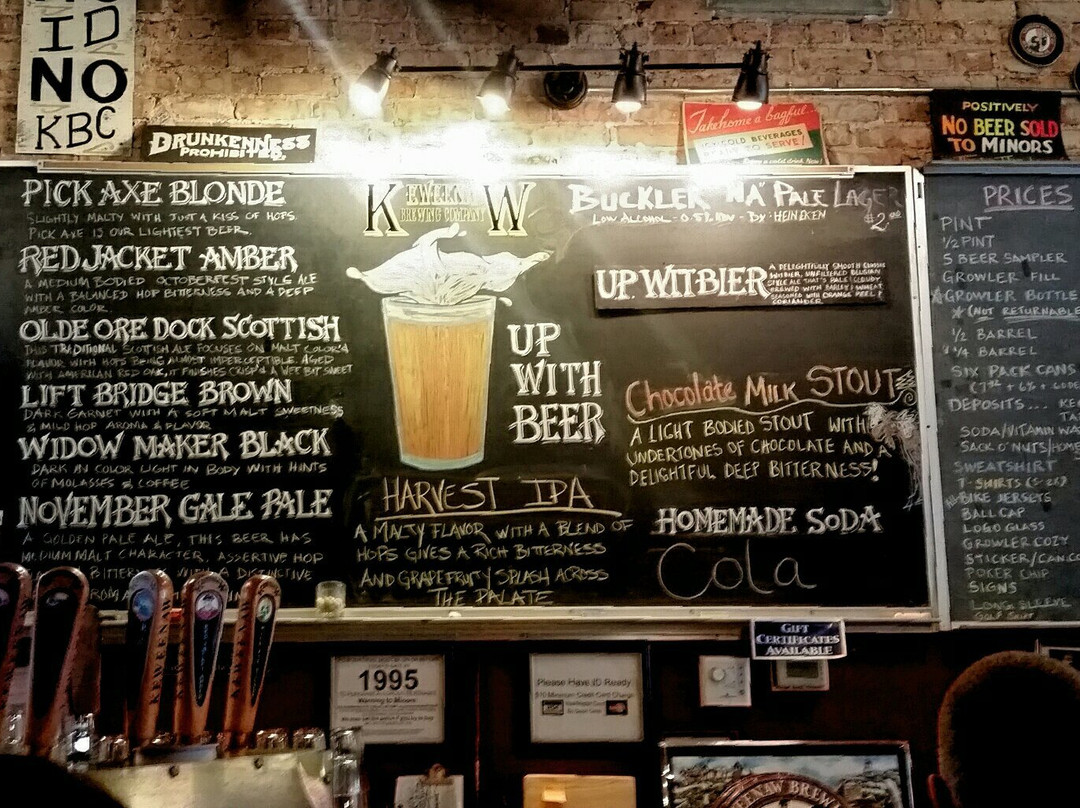 ID
NO
KBC
DRUNKENNESS
PROHIBITED
Take home a bagful
ICY-COLD BEVERAGES
READY TO SERVE!
Enjoy a cold drink Now!
POSITIVELY
NO BEER SOLD
TO MINORS
PICK AXE BLONDE
SLIGHTLY MALTY WITH JUST A KISS OF HOPS.
PICK AXE IS OUR LIGHTEST BEER.
RED JACKET AMBER
A MEDIUM BODIED OCTOBERFEST STYLE ALE
WITH A BALANCED HOP BITTERNESS AND A DEEP
AMBER COLOR.
OLDE ORE DOCK SCOTTISH
THIS TRADITIONAL SCOTTISH ALE FOCUSES ON MALT COLOR &
FLAVOR WITH HOPS BEING ALMOST IMPERCEPTIBLE. AGED
WITH AMERICAN RED OAK, IT FINISHES CRISP & A WEE BIT SWEET
LIFT BRIDGE BROWN
DARK GARNET WITH A SOFT MALT SWEETNESS
& MILD HOP AROMA & FLAVOR
WIDOW MAKER BLACK
DARK IN COLOR LIGHT IN BODY WITH HINTS
OF MOLASSES & COFFEE
NOVEMBER GALE PALE
A GOLDEN PALE ALE, THIS BEER HAS
MEDIUM MALT CHARACTER, ASSERTIVE HOP
BITTERNESS WITH A DISTINCTIVE
KEWEENAW
BREWING COMPANY
UP
WITH
BEER
HARVEST IPA
A MALTY FLAVOR WITH A BLEND OF
HOPS GIVES A RICH BITTERNESS
AND GRAPEFRUITY SPLASH ACROSS
THE PALATE
BUCKLER "NA" PALE LAGER
LOW ALCOHOL - 0.5% ABV - BY: HEINEKEN
$2.00
UP WITBIER
A DELIGHTFULLY SMOOTH
WITBIER, UNFILTERED BELGIAN
STYLE ALE THAT'S PALE & CLOUDY
BREWED WITH BARLEY & WHEAT
SEASONED WITH ORANGE PEEL &
CORIANDER
Chocolate MILK STOUT
A LIGHT BODIED STOUT WITH
UNDERTONES OF CHOCOLATE AND A
DELIGHTFUL DEEP BITTERNESS!
HOMEMADE SODA
Cola
PRICES
PINT
1/2 PINT
5 BEER SAMPLER
GROWLER FILL
GROWLER BOTTLE
* (NOT RETURNABLE
1/2 BARREL
1/4 BARREL
SIX PACK CANS
DEPOSITS... KE
SODA/VITAMIN WA
SACK O' NUTS/HOM
SWEATSHIRT
T-SHIRTS
BIKE JERSEYS
BALL CAP
LOGO GLASS
GROWLER COZY
STICKER/CAN CO
POKER CHIP
SIGNS
LONG SLEEVE
GOLF SHIRT
GIFT
CERTIFICATES
AVAILABLE
1995
Warning to Minors
Please Have ID Ready
$10 Minimum Credit Card Charge
KEWEENAW
EENAW BREW